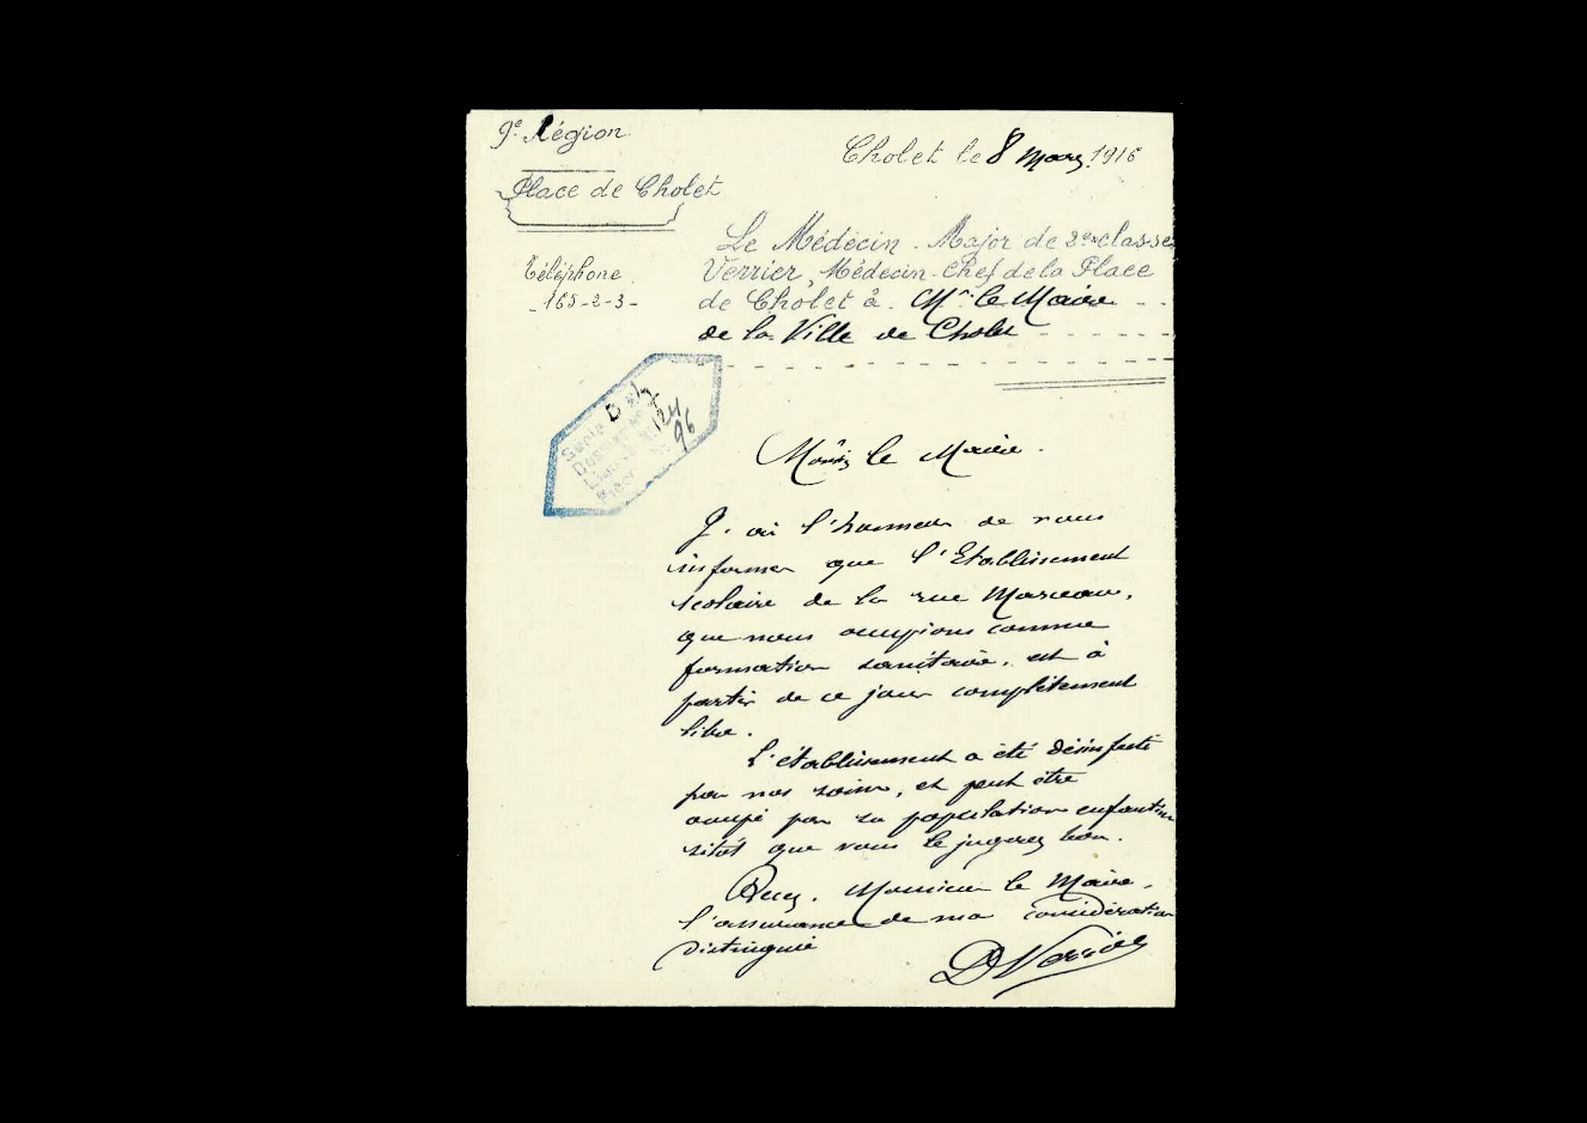 9e Région
Cholet le 8 Mars 1916
Place de Cholet
Le Médecin-Major de 2e classe
Verrier, Médecin-Chef de la Place
Téléphone
de Cholet à Mr le Maire
-165-2-3-
de la Ville de Cholet
Série D
124
96
le Maire.
J'ai l'honneur de vous
informer que l'Etablissement
scolaire de la rue Marceau,
que nous occupions comme
formation sanitaire, est à
partir de ce jour complètement
libre.
L'établissement a été désinfecté
par nos soins, et peut être
occupé par sa population enfantine
sitôt que vous le jugerez bon.
Recevez, Monsieur le Maire,
l'assurance de ma considération
distinguée
D Verrier